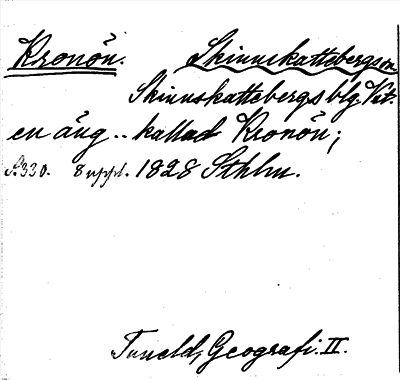 Kronön. Skinnskattebergs sn
Skinnskattebergs blg. Vst.
en äng .. kallad Kronön;
S. 330. 8 uppl. 1828 Sthlm.
Tuneld, Geografi. II.